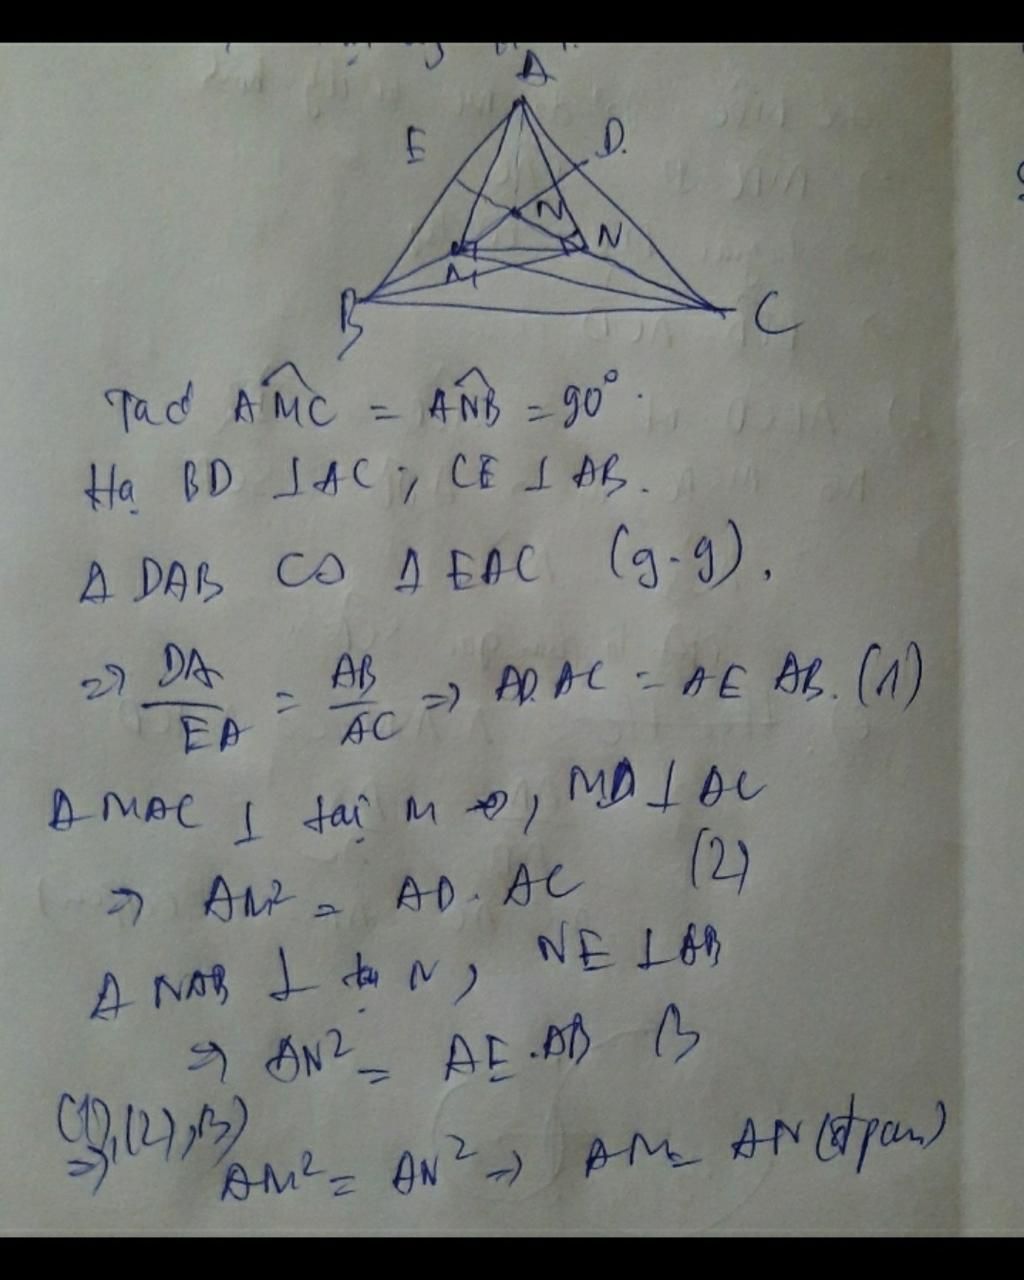 A
E
D.
N
N
M
B
C
Ta có AM̂C = AN̂B = 90°.
Hạ BD ⊥ AC; CE ⊥ AB.
Δ DAB ∽ Δ EAC (g-g).
=> DA/EA = AB/AC => AD.AC = AE AB. (1)
Δ MAC ⊥ tại M, MD ⊥ AC
=> AM² = AD.AC (2)
Δ NAB ⊥ tại N, NE ⊥ AB
=> AN² = AE.AB (3
(1),(2),(3)
=> AM² = AN² => AM = AN (đpcm)